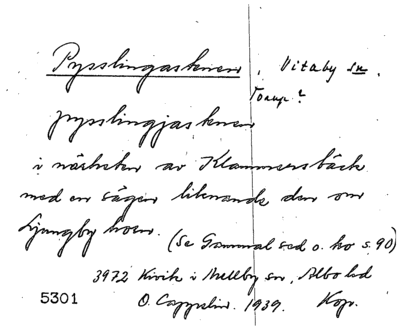 Pysslingastenen, Vitaby sn.
Torup?
pysslingjastenen
i närheten av Klammersbäck
med en sägen liknande den om
Ljungby horn. (Se Gammal sed o. bo s. 90)
3972 Kivik i Mellby sn, Albo hd
5301 O. Cappelin. 1939. Kop.